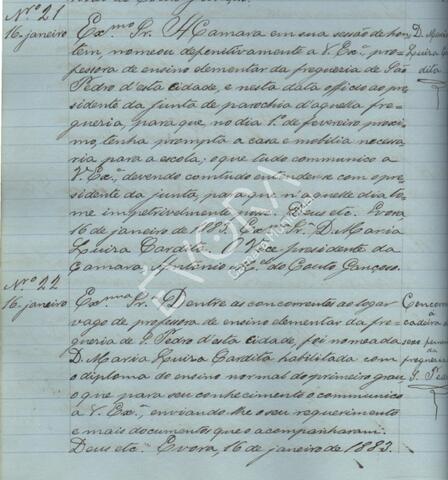 Nº 21
16. janeiro
Exmo Sr. A Camara em sua sessão de hon-
tem, nomeou definitivamente a V. Exª pro-
fessora de ensino elementar da freguesia de São
Pedro d'esta cidade, e nesta data officio ao pre-
sidente da junta de parochia d'aquella fre-
guesia, para que no dia 1º de fevereiro proxi-
mo, tenha prompta a casa e mobilia necessa-
ria para a escola; o que tudo communico a
V. Exª, devendo comtudo entender-se com o pre-
sidente da junta, para que n'aquelle dia to-
me impreterivelmente posse. Deus etc. Evora
16 de janeiro de 1883. Exma Sra. D. Maria
Luiza Cardita. O Vice-presidente da
Camara, Antonio do Couto
D. Maria
Luiza Car-
dita
Nº 22
16. janeiro
Exmo Sr. Dentre as concorrentes ao logar
vago de professora de ensino elementar da fre-
guesia de S. Pedro d'esta cidade, foi nomeada
D. Maria Luiza Cardita habilitada com
o diploma do ensino normal do primeiro grau
o que para seu conhecimento o communico
a V. Exª, enviando-lhe o seu requerimento
e mais documentos que o acompanharam.
Deus etc. Evora, 16 de janeiro de 1883.
á
cadeira
sexo
da
freguesia
S. Ped
EVORA